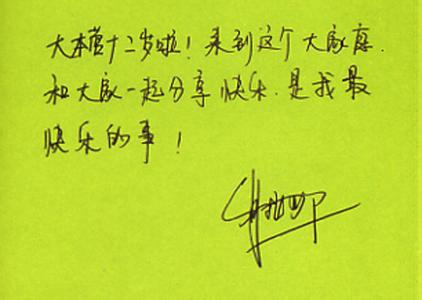 大本营十二岁啦！来到这个大家庭.
和大家一起分享快乐.是我最
快乐的事！